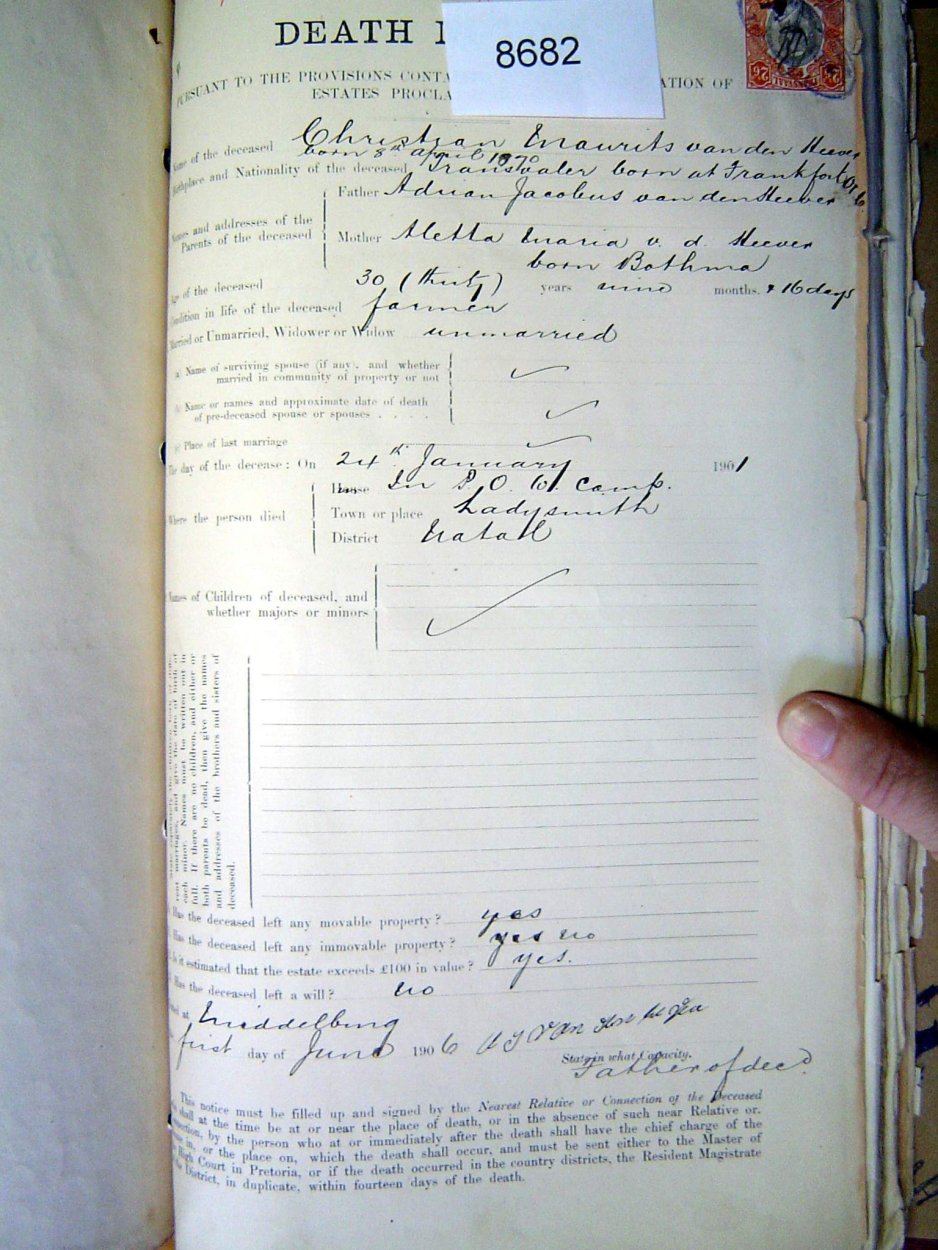 DEATH
8682
PURSUANT TO THE PROVISIONS CONTA ATION OF
ESTATES PROCLA
Name of the deceased Christian Maurits van den Heever
born 8th april 1870
Birthplace and Nationality of the deceased Transvaler born at Frankfort
Names and addresses of the Parents of the deceased
Father Adrian Jacobus van den Heever
Mother Aletta Maria v. d. Heever
born Bothma
Age of the deceased 30 (thirty) years nine months. & 16 days
Condition in life of the deceased farmer
Married or Unmarried, Widower or Widow unmarried
(a) Name of surviving spouse (if any), and whether
married in community of property or not
(b) Name or names and approximate date of death
of pre-deceased spouse or spouses . . . .
(c) Place of last marriage
The day of the decease: On 24th January 1901
Where the person died
House In P. O. W. Camp.
Town or place Ladysmith
District Natal
Names of Children of deceased, and
whether majors or minors
each minor. Names must be written out in
full. If there are no children, and either or
both parents be dead, then give the names
and addresses of the brothers and sisters of
deceased.
Has the deceased left any movable property? yes
Has the deceased left any immovable property? yes no
Is it estimated that the estate exceeds £100 in value? yes.
Has the deceased left a will? no
at Middelburg
first day of June 1906
State in what Capacity.
Father of decd.
This notice must be filled up and signed by the Nearest Relative or Connection of the Deceased
shall at the time be at or near the place of death, or in the absence of such near Relative or
Connection, by the person who at or immediately after the death shall have the chief charge of the
in, or the place on, which the death shall occur, and must be sent either to the Master of
High Court in Pretoria, or if the death occurred in the country districts, the Resident Magistrate
the District, in duplicate, within fourteen days of the death.